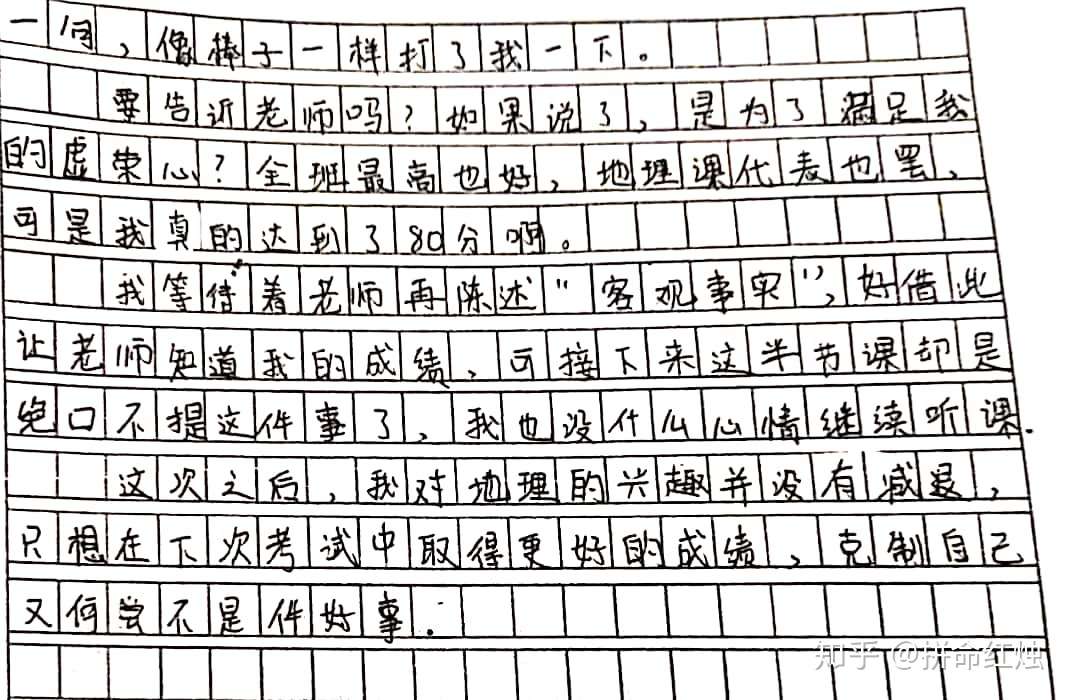 一向，像棒子一样打了我一下。
要告诉老师吗？如果说了，是为了满足我
的虚荣心？全班最高也好，地理课代表也罢，
可是我真的达到了80分啊。
我等待着老师再陈述“客观事实”，好借此
让老师知道我的成绩，可接下来这半节课却是
绝口不提这件事了，我也没什么心情继续听课.
这次之后，我对地理的兴趣并没有减退，
只想在下次考试中取得更好的成绩，克制自己
又何尝不是件好事.
知乎 @拼命红烛